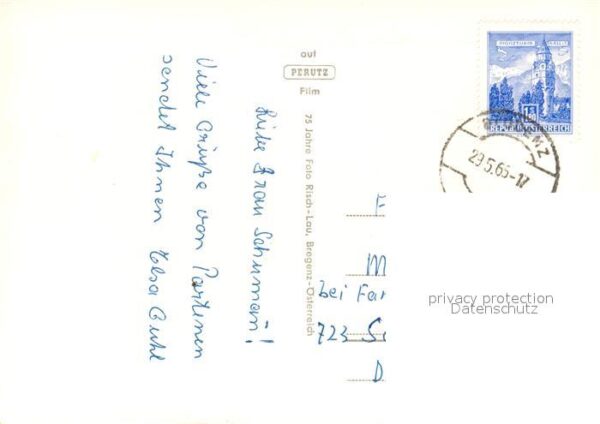 Liebe Frau Schumann!
Viele Grüße von Partenen
sendet Ihnen Elsa
auf
PERUTZ
Film
75 Jahre Foto Risch-Lau, Bregenz-Österreich
S 1.50
REPUBLIK ÖSTERREICH
BREGENZ
29.5.65-17
F
M
bei Fa
723 S
D
privacy protection
Datenschutz